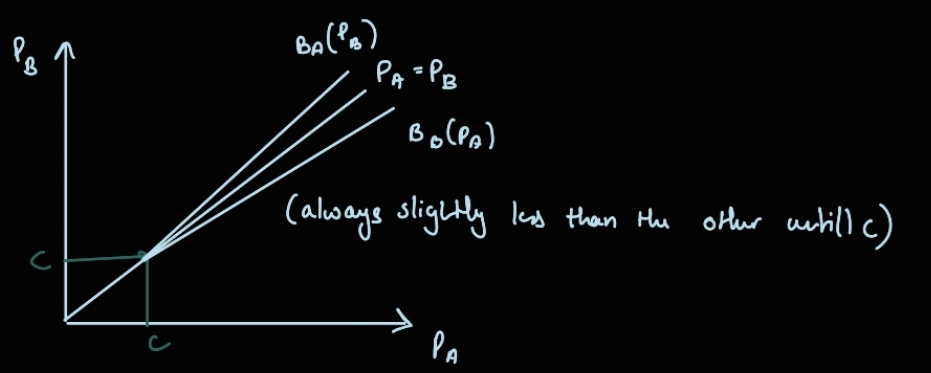 B_A(P_B)
P_B
P_A = P_B
B_B(P_A)
(always slightly less than the other until c)
C
C
P_A